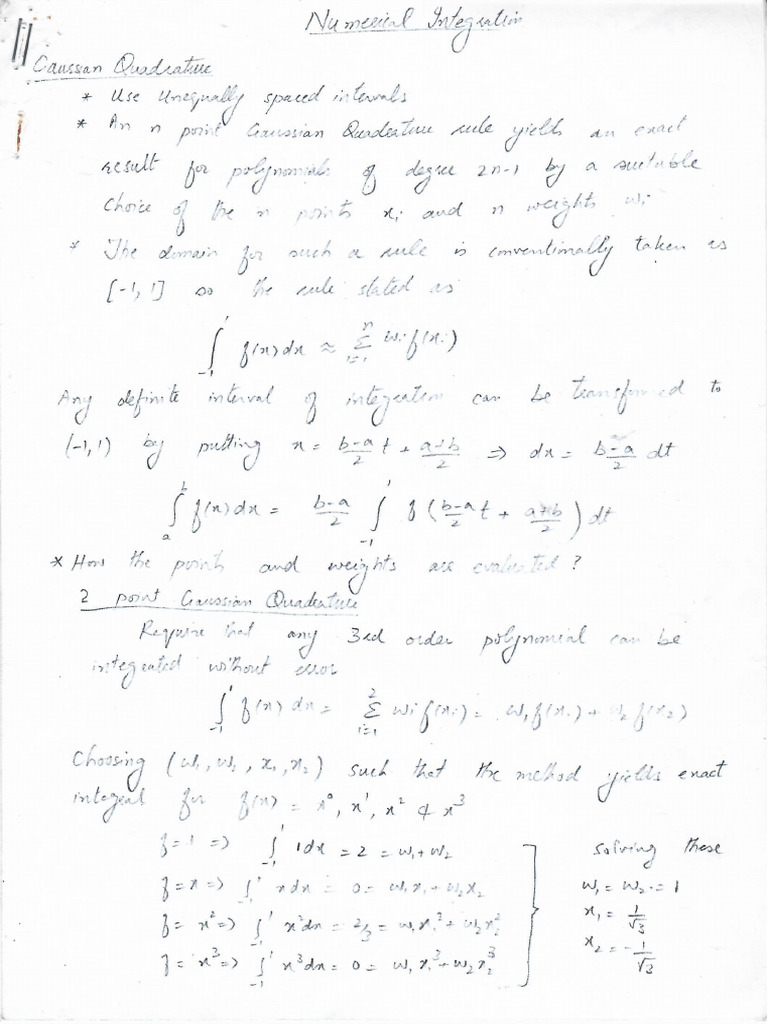 Numerical Integration
Gaussian Quadrature
* Use Unequally spaced intervals
* An n point Gaussian Quadrature rule yields an exact
result for polynomials of degree 2n-1 by a suitable
choice of the n points xᵢ and n weights wᵢ
* The domain for such a rule is conventionally taken as
[-1, 1] so the rule stated as
∫₋₁¹ f(x) dx ≈ Σᵢ₌₁ⁿ wᵢ f(xᵢ)
Any definite interval of integration can be transformed to
(-1, 1) by putting x = (b-a)/2 t + (a+b)/2 ⇒ dx = (b-a)/2 dt
∫ₐᵇ f(x) dx = (b-a)/2 ∫₋₁¹ f((b-a)/2 t + (a+b)/2) dt
* How the points and weights are evaluated?
2 point Gaussian Quadrature
Require that any 3rd order polynomial can be
integrated without error
∫₋₁¹ f(x) dx = Σᵢ₌₁² wᵢ f(xᵢ) = w₁f(x₁) + w₂ f(x₂)
Choosing (w₁, w₂, x₁, x₂) such that the method yields exact
integral for f(x) = x⁰, x¹, x² & x³
f = 1 ⇒ ∫₋₁¹ 1dx = 2 = w₁ + w₂
f = x ⇒ ∫₋₁¹ xdx = 0 = w₁x₁ + w₂x₂
f = x² ⇒ ∫₋₁¹ x²dx = 2/3 = w₁x₁² + w₂x₂²
f = x³ ⇒ ∫₋₁¹ x³dx = 0 = w₁x₁³ + w₂x₂³
solving these
w₁ = w₂ = 1
x₁ = 1/√3
x₂ = -1/√3